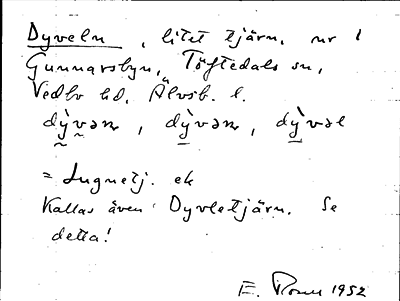 Dyveln, litet tjärn, nr 1
Gunnarsbyn, Töftedals sn,
Vedbo hd, Älvsb. l.
dỳvən, dỳvən, dỳvəl
= Lugnetj. ek
Kallas även Dyvletjärn. Se
detta!
E. 1952